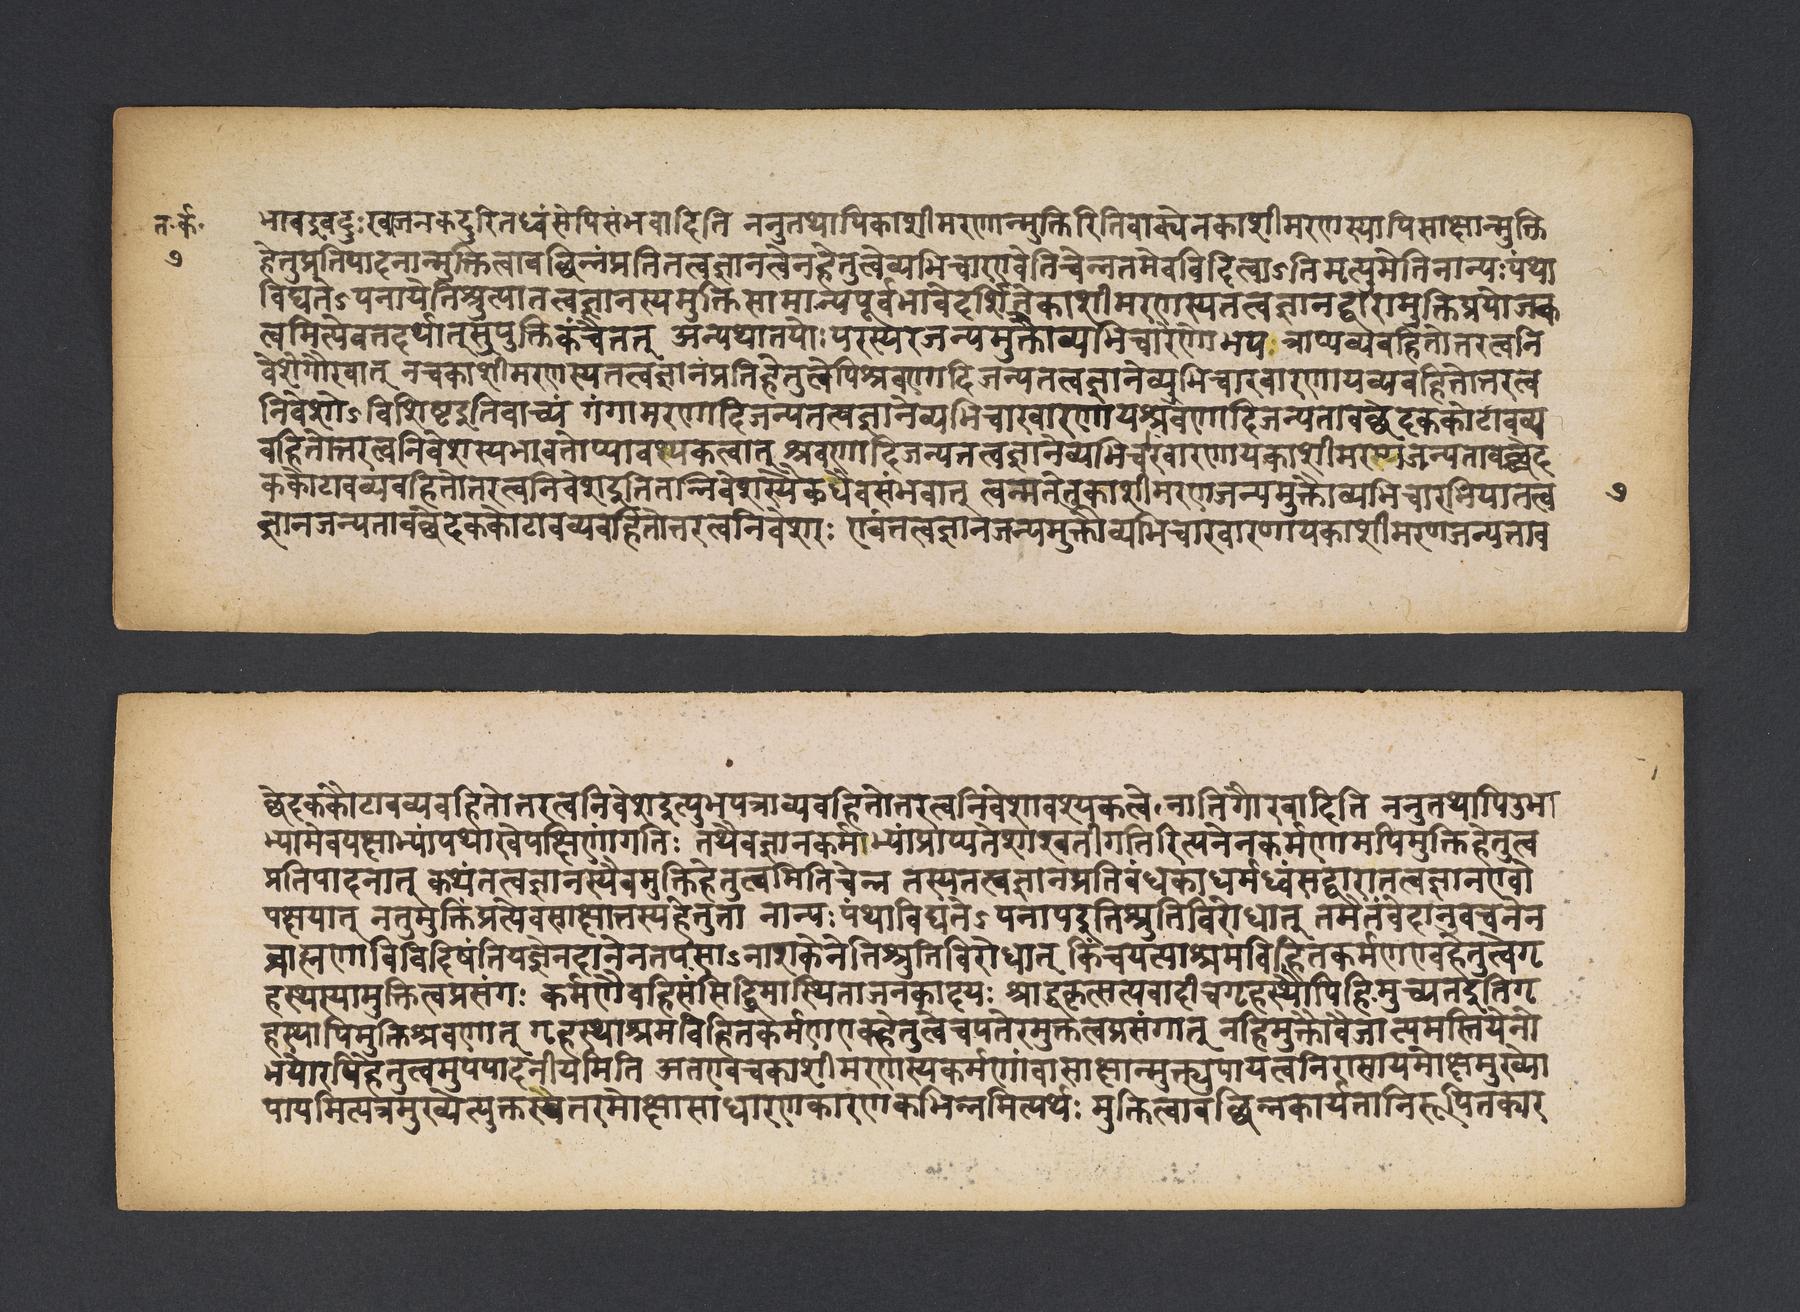 त·र्क·
७
भावइवदुःखाजनकदुरितध्वंसेपिसंभवादिति ननुतथापिकाशीमरणान्मुक्तिरितिवाक्येनकाशीमरणस्यापिसाक्षान्मुक्ति
हेतुप्रतिपादनान्मुक्तित्वावच्छिन्नंप्रतितत्वज्ञानत्वेनहेतुत्वेव्यभिचारएवेतिचेन्नतमेवविदित्वाऽतिमृत्युमेतिनान्यःपंथा
विद्यतेऽयनायेतिश्रुत्यातत्वज्ञानस्यमुक्तिसामान्यपूर्वभावेदर्शितेकाशीमरणस्यतत्वज्ञानद्वारामुक्तिप्रयोजक
त्वमित्येवतदर्थात्सुयुक्तिकंचैतत् अन्यथातयोःपरस्परजन्यमुक्तौव्यभिचारेणोभयत्राप्यव्यवहितोत्तरत्वनि
वेशेगौरवात् नचकाशीमरणस्यतत्वज्ञानंप्रतिहेतुत्वेपिश्रवणादिजन्यतत्वज्ञानेव्यभिचारवारणायव्यवहितोत्तरत्व
निवेशोऽविशिष्टइतिवाच्यं गंगामरणादिजन्यतत्वज्ञानेव्यभिचारवारणायश्रवणादिजन्यतावच्छेदककोटावव्य
वहितोत्तरत्वनिवेशस्यभावतोप्यावश्यकत्वात् श्रवणादिजन्यतत्वज्ञानेव्यभिचारवारणायकाशीमरणजन्यतावच्छेद
ककोटावव्यवहितोत्तरत्वनिवेशइतितन्निवेशस्यैकधैवसंभवात् त्वन्मतेतुकाशीमरणजन्यमुक्तौव्यभिचारभियातत्व
७
ज्ञानजन्यतावच्छेदककोटावव्यवहितोत्तरत्वनिवेशः एवंतत्वज्ञानजन्यमुक्तौव्यभिचारवारणायकाशीमरणजन्यताव
च्छेदककोटावव्यवहितोत्तरत्वनिवेशइत्युभयत्राव्यवहितोत्तरत्वनिवेशावश्यकत्वेनातिगौरवादिति ननुतथापिउभा
भ्यामेवपक्षाभ्यांयथाखेपक्षिणांगतिः तथैवज्ञानकर्माभ्यांप्राप्यतेशाश्वतीगतिरित्यनेनकर्मणामपिमुक्तिहेतुत्व
प्रतिपादनात् कथंतत्वज्ञानस्यैवमुक्तिहेतुत्वमितिचेन्न तस्यतत्वज्ञानप्रतिबंधकाधर्मध्वंसद्वारातत्वज्ञानएवो
पक्षयात् नतुमुक्तिंप्रत्येवसाक्षात्तस्यहेतुता नान्यःपंथाविद्यतेऽयनायइतिश्रुतिविरोधात् तमेतंवेदानुवचनेन
ब्राह्मणाविविदिषंतियज्ञेनदानेनतपसाऽनाशकेनेतिश्रुतिविरोधात् किंचयत्याश्रमविहितकर्मणएवहेतुत्वेगृ
हस्थस्यामुक्तित्वप्रसंगः कर्मणैवहिसंसिद्धिमास्थिताजनकादयः श्राद्धकृत्सत्यवादीचगृहस्थोपिहिमुच्यतइतिगृ
हस्थापिमुक्तिश्रवणात् गृहस्थाश्रमविहितकर्मणएवहेतुत्वेचयतेरमुक्तत्वप्रसंगात् नहिमुक्तौवैजात्यमस्तियेनो
भयोरपिहेतुत्वमुपपादनीयमिति अतएवचकाशीमरणस्यकर्मणांवासाक्षान्मुक्त्युपायत्वनिरासायमोक्षमुख्यो
पायमित्यत्रमुख्येत्युक्तस्यैतरमोक्षासाधारणकारणकभिन्नमित्यर्थः मुक्तित्वावच्छिन्नकार्यतानिरूपितकार